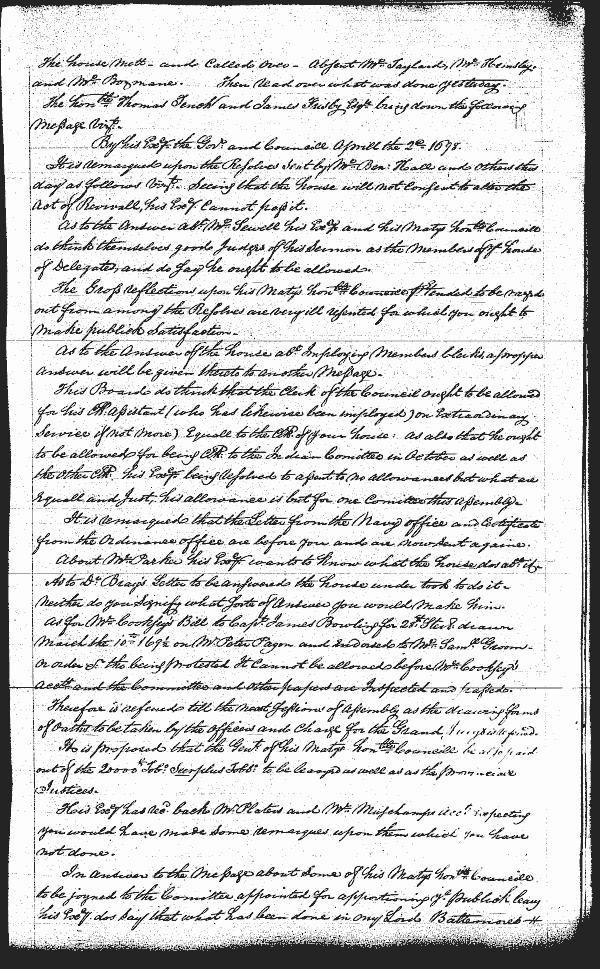 The house mett - and Called over - Absent Mr. Tayland, Mr. Hemsley
and Mr. Bozmane. Then read over what was done yesterday.
The honble Thomas Tench and James Frisby Esqrs. bring down the following
Message Vizt.
By his Exy. the Govr. and Councill Aprill the 2d. 1698.
It is remarqued upon the Resolves Sent by Mr. Ben: Hall and others this
day as follows Vizt. Seeing that the house will not Consent to alter the
Act of Revivall, his Exy Cannot pass it.
As to the Answer abt. Mr. Sewell his Exy and his Matys honble Councill
do think themselves good Judges of his Sermon as the Members of ye house
of Delegates, and do say he ought to be allowed.
The Gross reflection upon his Matys honble Councill prtended to be
out from among the Resolves are very ill resented for which you ought to
make publick Satisfaction.
As to the Answer of the house abt. Imploying Members Clerks, a propper
answer will be given thereto to another Message.
This Board do think that the Clerk of the Council ought to be allowed
for his Clk Assistant (who has likewise been imployed) on Extraordinary
Service if not more) Equall to the Clk of your house: As also that he ought
to be allowed for being Clk to the Indian Comittee in October as well as
the other Clk, his Exy. being Resolved to assent to no allowances but what are
Equall and Just, his allowance is but for one Comittee this Assembly.
It is remarqued that the Letter from the Navy office and Certificate
from the Ordinance office are before you and are now sent againe.
About Mr. Parker his Exy. wants to know what the house dos abt. it.
As to Dr. Bray's Letter to be answered the house under took to do it -
neither do you Signify what sorte of Answer you would make him.
As for Mr. Cooksey's Bill to Capt. James Bowling for 20l. Ster. drawn
March the 10th 169½ on Mr. Peter Pagon and Indorsed to Mr. Saml. Groom -
in order & the being protested It Cannot be allowed before Mr. Cooksey's
acctt. and the Committee and other papers are Inspected and passed.
Therefore is referred till the next Sessions of Assembly as the drawing forms
of Oaths to be taken by the officers and Charge for the Grand
It is proposed that the Gent. of his Matys honble Councill be also paid
out of the 20000l Tob. Surplus Tobb. to be leavyed as well as as the Provinciall
Justices.
His Exy has red. back Mr. Platers and Mr. Muschamps acctt. expecting
you would have made some remarques upon them which you have
not done.
In answer to the Message about Some of his Matys honble Councill
to be joyned to the Comittee appointed for apportioning ye. Publick leavy
his Exy. dos Say that what has been done in my Lord Baltemores